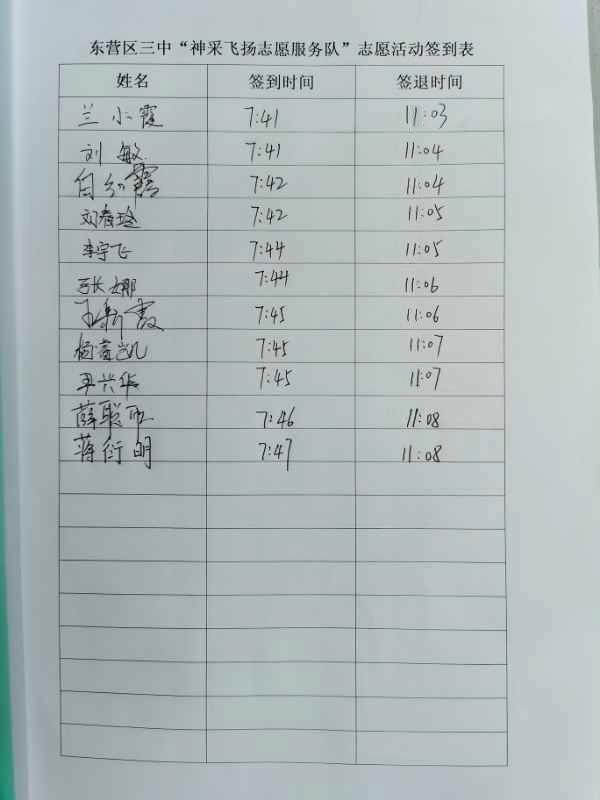 东营区三中“神采飞扬志愿服务队”志愿活动签到表
姓名 签到时间 签退时间
兰小霞 7:41 11:03
刘敏 7:41 11:04
白红霞 7:42 11:04
刘春玲 7:42 11:05
李宇飞 7:44 11:05
张娜 7:44 11:06
王新霞 7:45 11:06
杨凯 7:45 11:07
尹兴华 7:45 11:07
薛聪 7:46 11:08
蒋衍明 7:47 11:08